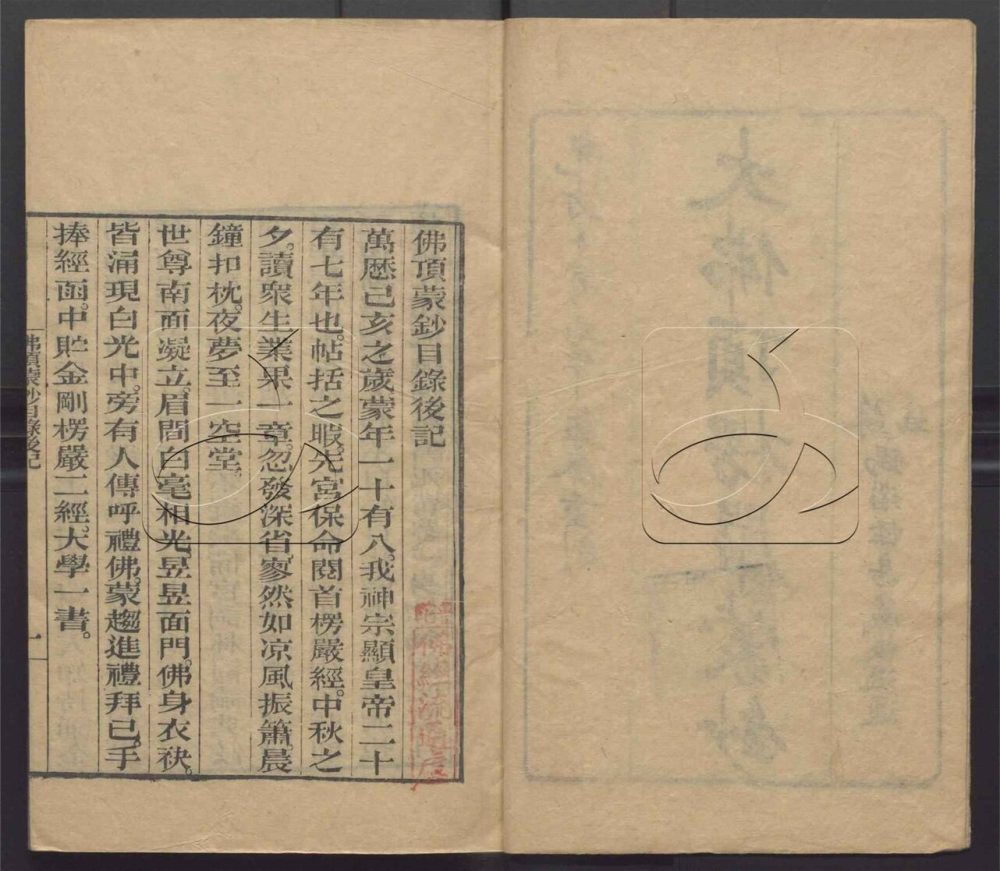 佛頂蒙鈔目錄後記
萬歷己亥之歲蒙年一十有八。我神宗顯皇帝二十
有七年也。帖括之暇。先宮保命閱首楞嚴經。中秋之
夕。讀衆生業果一章。忽發深省。寥然如凉風振簫晨
鐘扣枕。夜夢至一空堂。
世尊南面凝立。眉間白毫相光。昱昱面門。佛身衣袂。
皆涌現白光中。旁有人傳呼禮佛。蒙趨進禮拜已。手
捧經函。中貯金剛楞嚴二經。大學一書。
佛頂蒙鈔目錄後記
一